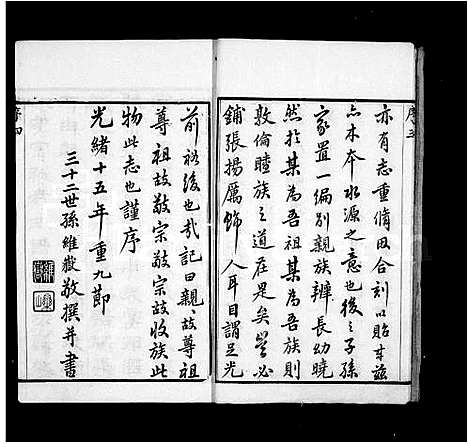 序三
亦有志重脩因合刻以貽來茲
亦木本水源之意也後之子孫
家置一編別親族辨長幼曉
然於某為吾祖某為吾族則
敦倫睦族之道在是矣豈必
鋪張揚厲飾人耳目謂足光
前裕後也哉記曰親親故尊祖
尊祖故敬宗敬宗故收族此
物此志也謹序
光緒十五年重九節
三十二世孫維嶽敬撰并書
序四